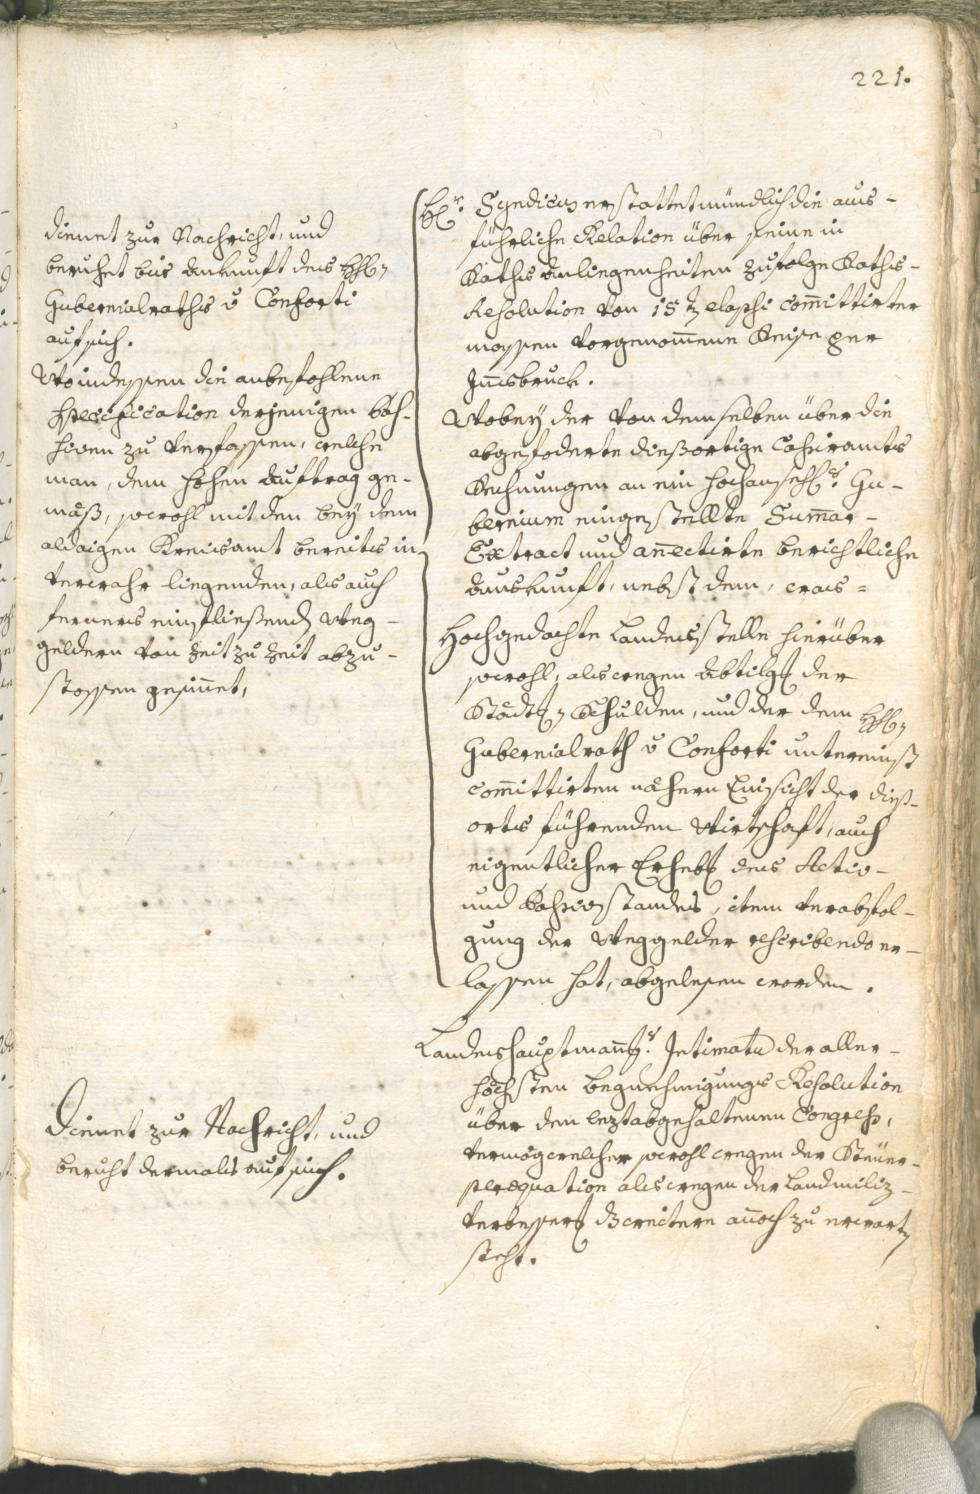 221.
dienet zur Nachricht, und
beruhet bis Ankunft des
Gubernialraths v Conforti
auf sich.
Wo indessen die anbefohlene
Specification derjenigen Pas-
siven zu verfassen, welche
man, dem hohen Auftrag ge-
mäß, sowohl mit den bey dem
aldaigen Kreisamt bereits in
verwahr liegenden, als auch
ferners einfließend Weg-
geldern von Zeit zu Zeit abzu-
stossen gesinnet,
Dienet zur Nachricht, und
beruht dermals auf sich.
Hr. Syndicus erstattet mündlich die aus-
führliche Relation über seine in
Raths Anliegenheiten zufolge Raths-
Resolution von 15 elapsi committirter
massen vorgenommene Reise per
Innsbruck.
Wobey der von demselben über die
abgefoderte dießortige Cassiramts
Rechnungen an ein hochansehl. Gu-
bernium eingestellte Summar-
Extract und annectirte berichtliche
Auskunft, nebst dem, was
Hochgedachte Landesstelle hierüber
sowohl, als wegen Abtilg der
Stadt Schulden, und der dem
Gubernialrath v Conforti untereinst
committirten nähern Einsicht der dieß-
orts führenden Wirtschaft, auch
eigentlicher Erheb des Activ-
und Passivstandes, item verabfol-
gung der Weggelder rescribendo er-
lassen hat, abgelesen worden.
Landeshauptmann. Intimatum der aller-
höchsten begnehmigungs Resolution
über den leztabgehaltenen Congress,
vermög welcher sowohl wegen der Steüer-
peræquation als wegen der Landmiliz-
verbesser weitere annoch zu erwart
steht.